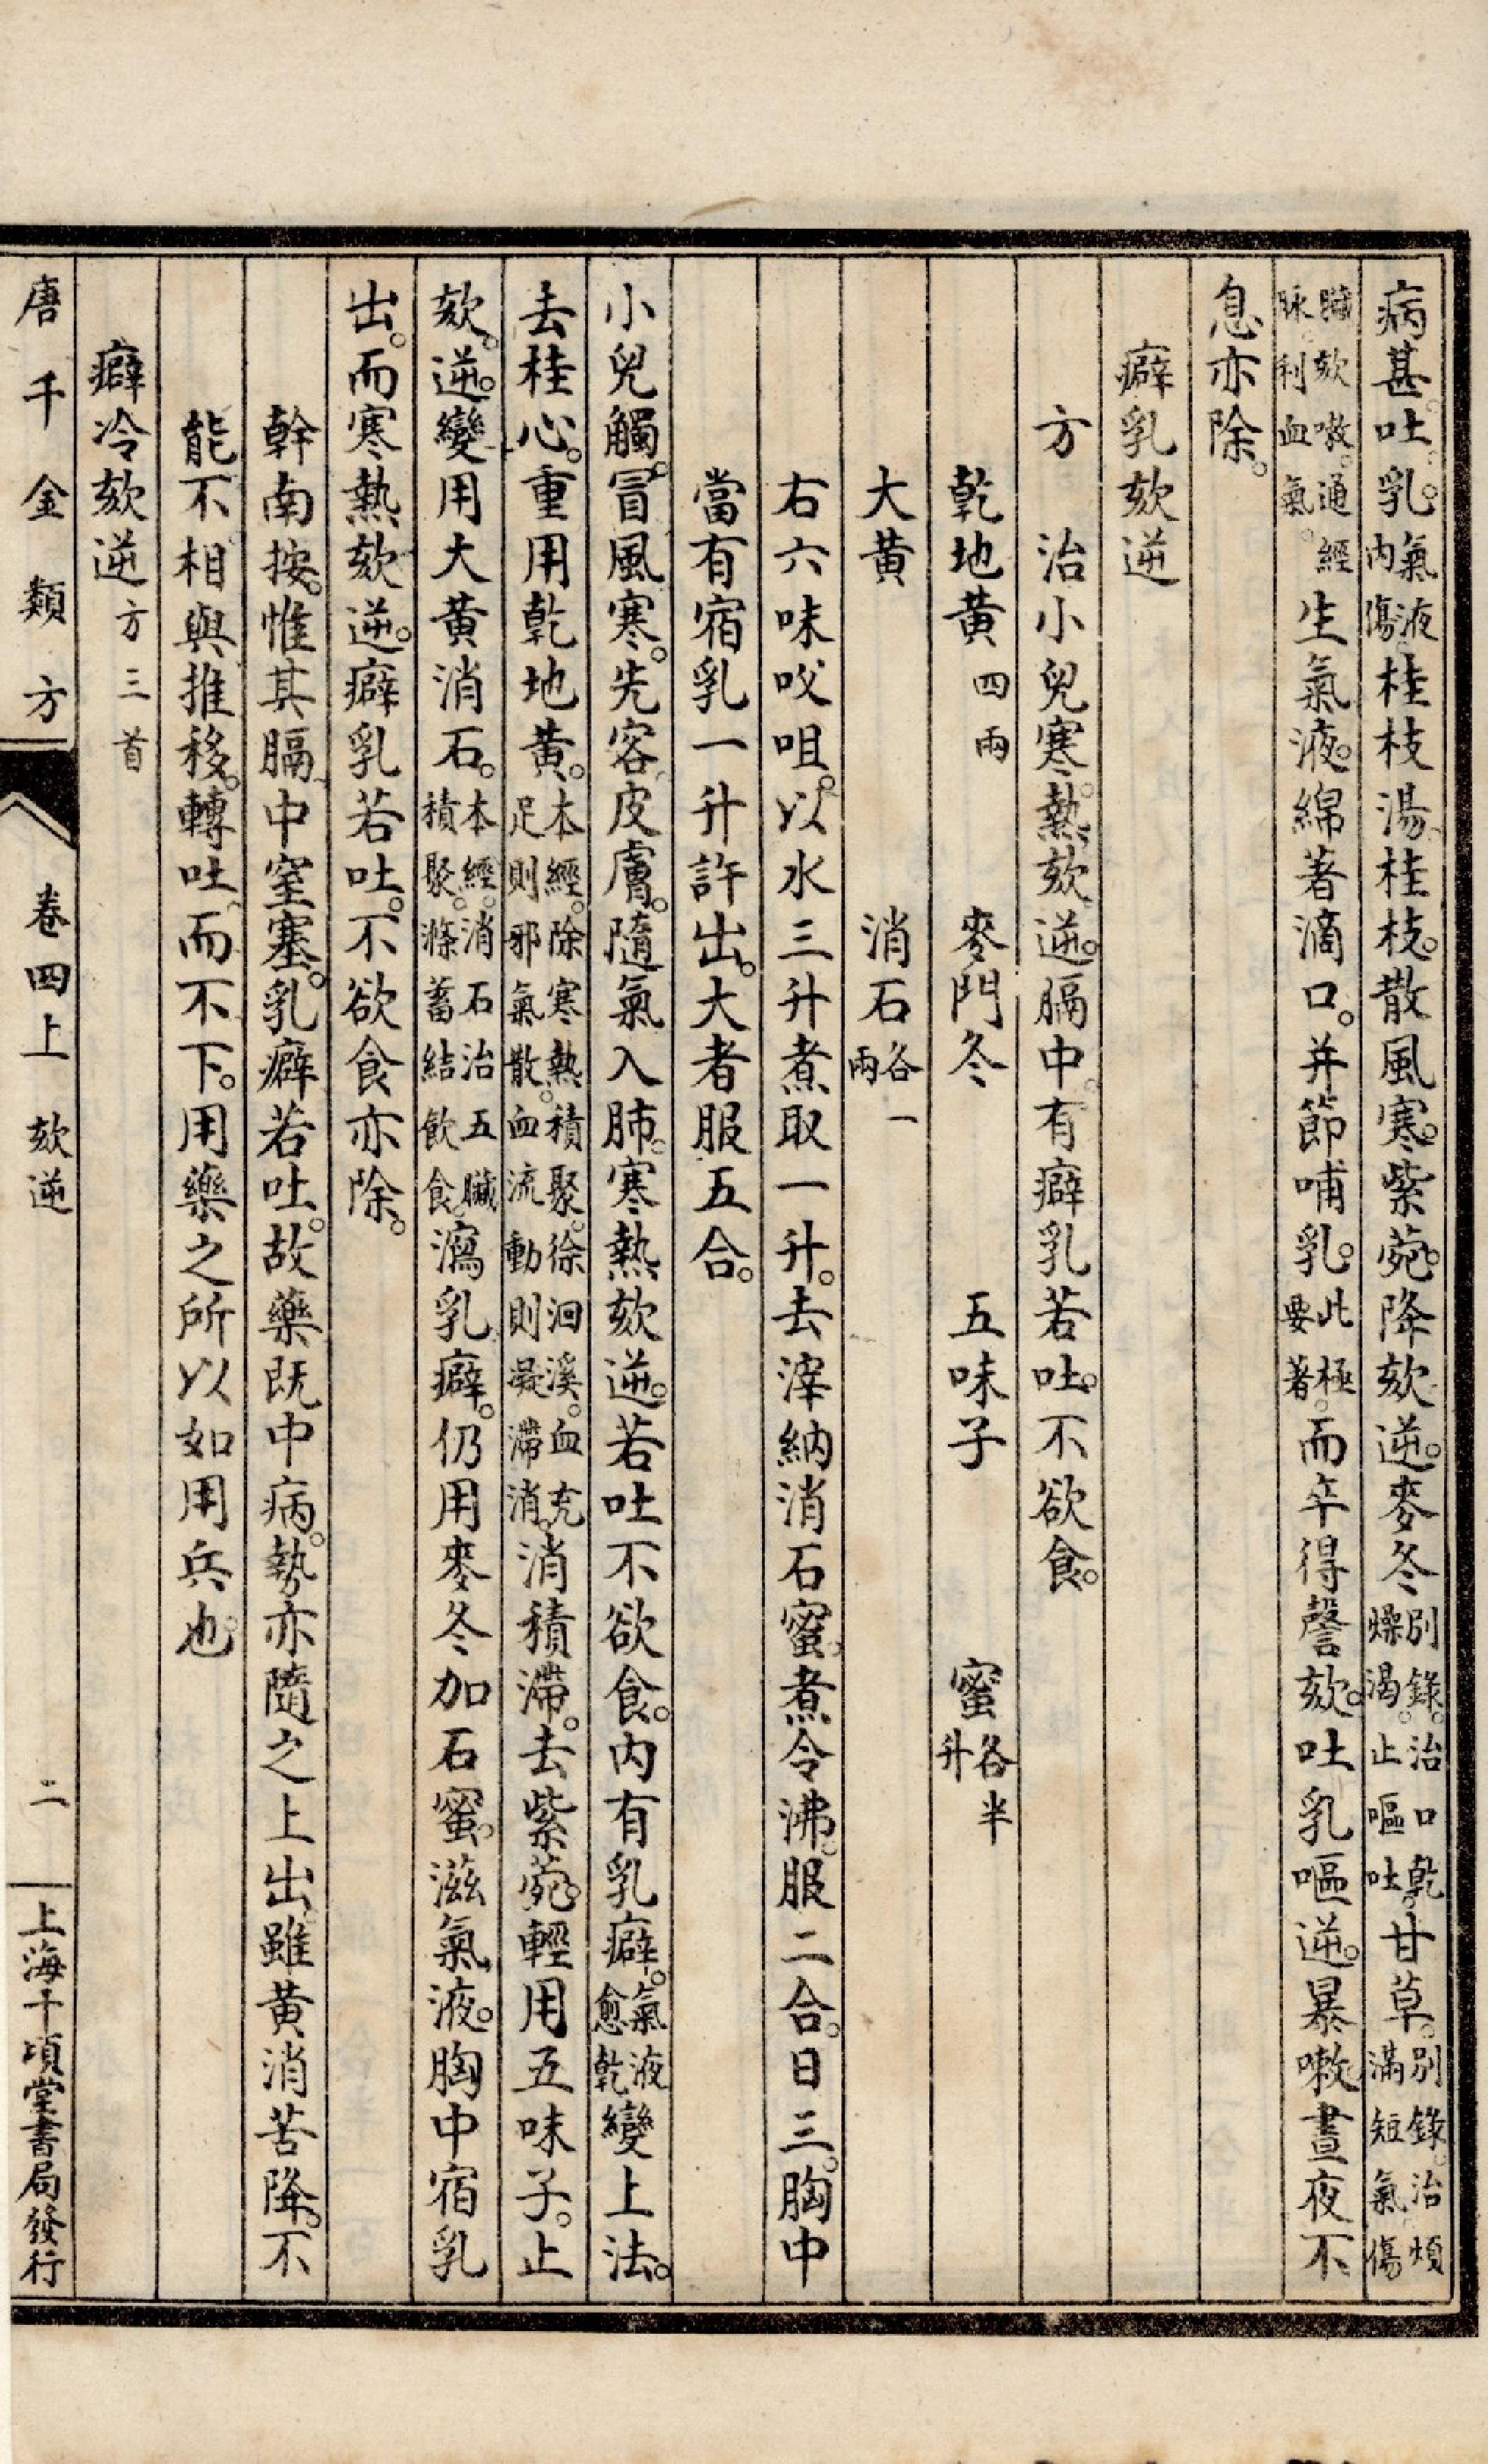 病甚。吐乳。氣液內傷。桂枝湯。桂枝。散風寒。紫菀。降欬逆。麥冬別錄。治口乾燥渴。止嘔吐。甘草。別錄。治煩滿短氣。傷
臟欬嗽。通經脉。利血氣。生氣液。綿著滴口。并節哺乳。此極要著。而卒得謦欬。吐乳嘔逆。暴嗽晝夜不
息亦除。
癖乳欬逆
方　治小兒寒熱欬逆。膈中有癖乳若吐。不欲食。
乾地黃四兩　麥門冬　五味子　蜜各半升
大黃　消石各一兩
右六味㕮咀。以水三升煮取一升。去滓納消石蜜。煮令沸。服二合。日三。胸中
當有宿乳一升許出。大者服五合。
小兒觸。冒風寒。先客皮膚。隨氣入肺。寒熱欬逆。若吐不欲食。內有乳癖。氣液愈乾變上法。
去桂心。重用乾地黃。本經。除寒熱積聚。徐洄溪。血充足則邪氣散。血流動則凝滯消。消積滯。去紫菀。輕用五味子。止
欬。逆。變用大黃消石。本經。消石治五臟積聚。滌蓄結飲食。瀉乳癖。仍用麥冬加石蜜。滋氣液。胸中宿乳
出。而寒熱欬逆。癖乳若吐。不欲食亦除。
幹南按。惟其膈中窒塞。乳癖若吐。故藥既中病。勢亦隨之上出。雖黃消苦降。不
能不相與推移。轉吐而不下。用藥之所以如用兵也。
癖冷欬逆方三首
唐千金類方　卷四上　欬逆　二　上海千頃堂書局發行